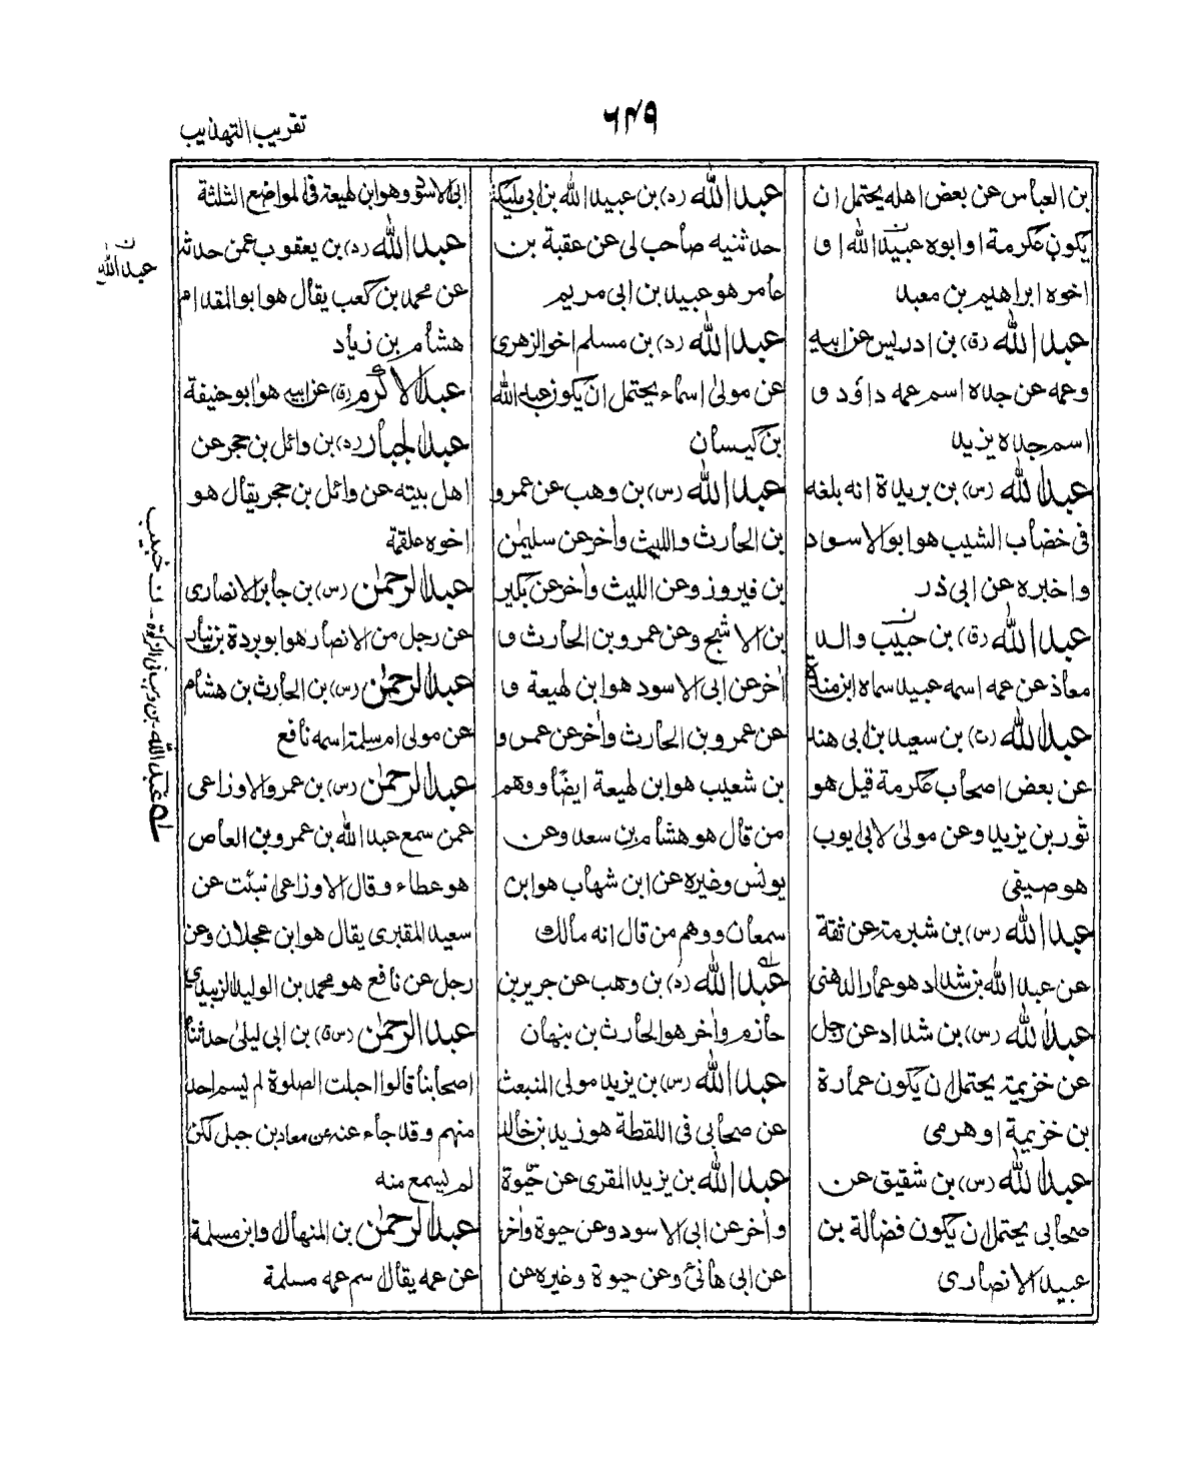 تقريب التهذيب
٦٤٩
بن العباس عن بعض اهله يحتمل ان
يكون عكرمة او ابوه عبيد الله او
اخوه ابراهيم بن معبد
عبد الله (ق) بن ادريس عن ابيه
وعمه عن جده اسم عمه داؤد و
اسم جده يزيد
عبد الله (س) بن بريدة انه بلغه
فى خضاب الشيب هو ابو الاسود
واخبره عن ابى ذر
عبد الله (ق) بن حبيب والد
معاذ عن عمه اسمه عبيد سماه ابن مندة
عبد الله (ت) بن سعيد بن ابى هند
عن بعض اصحاب عكرمة قيل هو
ثور بن يزيد وعن مولى لابى ايوب
هو صيفى
عبد الله (س) بن شبرمة عن ثقة
عن عبد الله بن شداد هو عمار الدهنى
عبد الله (س) بن شداد عن رجل
عن خزيمة يحتمل ان يكون عمارة
بن خزيمة او هرمى
عبد الله (س) بن شقيق عن
صحابى يحتمل ان يكون فضالة بن
عبيد الانصارى
عبد الله (د) بن عبيد الله بن ابى مليكة
حدثنيه صاحب لى عن عقبة بن
عامر هو عبيد بن ابى مريم
عبد الله (د) بن مسلم اخو الزهرى
عن مولى اسماء يحتمل ان يكون عبد الله
بن كيسان
عبد الله (س) بن وهب عن عمرو
بن الحارث والليث وأخر عن سليمن
بن فيروز وعن الليث وأخر عن بكير
بن الاشج وعن عمرو بن الحارث و
أخر عن ابى الاسود هو ابن لهيعة و
عن عمرو بن الحارث وأخر عن عمرو
بن شعيب هو ابن لهيعة ايضًا ووهم
من قال هو هشام بن سعد وعن
يونس وغيره عن ابن شهاب هو ابن
سمعان ووهم من قال انه مالك
عبد الله (د) بن وهب عن جرير بن
حازم وأخر هو الحارث بن نبهان
عبد الله (س) بن يزيد مولى المنبعث
عن صحابى فى اللقطة هو زيد بن خالد
عبد الله بن يزيد المقرى عن حيوة
وأخر عن ابى الاسود وعن حيوة وأخر
عن ابى هانئ وعن حيوة وغيره عن
ابى الاسود وهو ابن لهيعة فى المواضع الثلثة
عبد الله (د) بن يعقوب عمن حدثه
عن محمد بن كعب يقال هو ابو المقدام
هشام بن زياد
عبد الاكرم (ق) عن ابيه هو ابو حنيفة
عبد الجبار (د) بن وائل بن حجر عن
اهل بيته عن وائل بن حجر يقال هو
اخوه علقمة
عبد الرحمٰن (س) بن جابر الانصارى
عن رجل من الانصار هو ابو بردة بن نيار
عبد الرحمٰن (س) بن الحارث بن هشام
عن مولى ام سلمة اسمه نافع
عبد الرحمٰن (س) بن عمرو الاوزاعى
عمن سمع عبد الله بن عمرو بن العاص
هو عطاء وقال الاوزاعى نبئت عن
سعيد المقبرى يقال هو ابن عجلان وعن
رجل عن نافع هو محمد بن الوليد الزبيدى
عبد الرحمٰن (س ق) بن ابى ليلى حدثنا
اصحابنا قالوا احيلت الصلوة لم يسم احد
منهم وقد جاء عنه عن معاذ بن جبل لكن
لم يسمع منه
عبد الرحمٰن بن المنهال وابن مسلمة
عن عمه يقال اسم عمه مسلمة
ن
عبد الله
خبيب